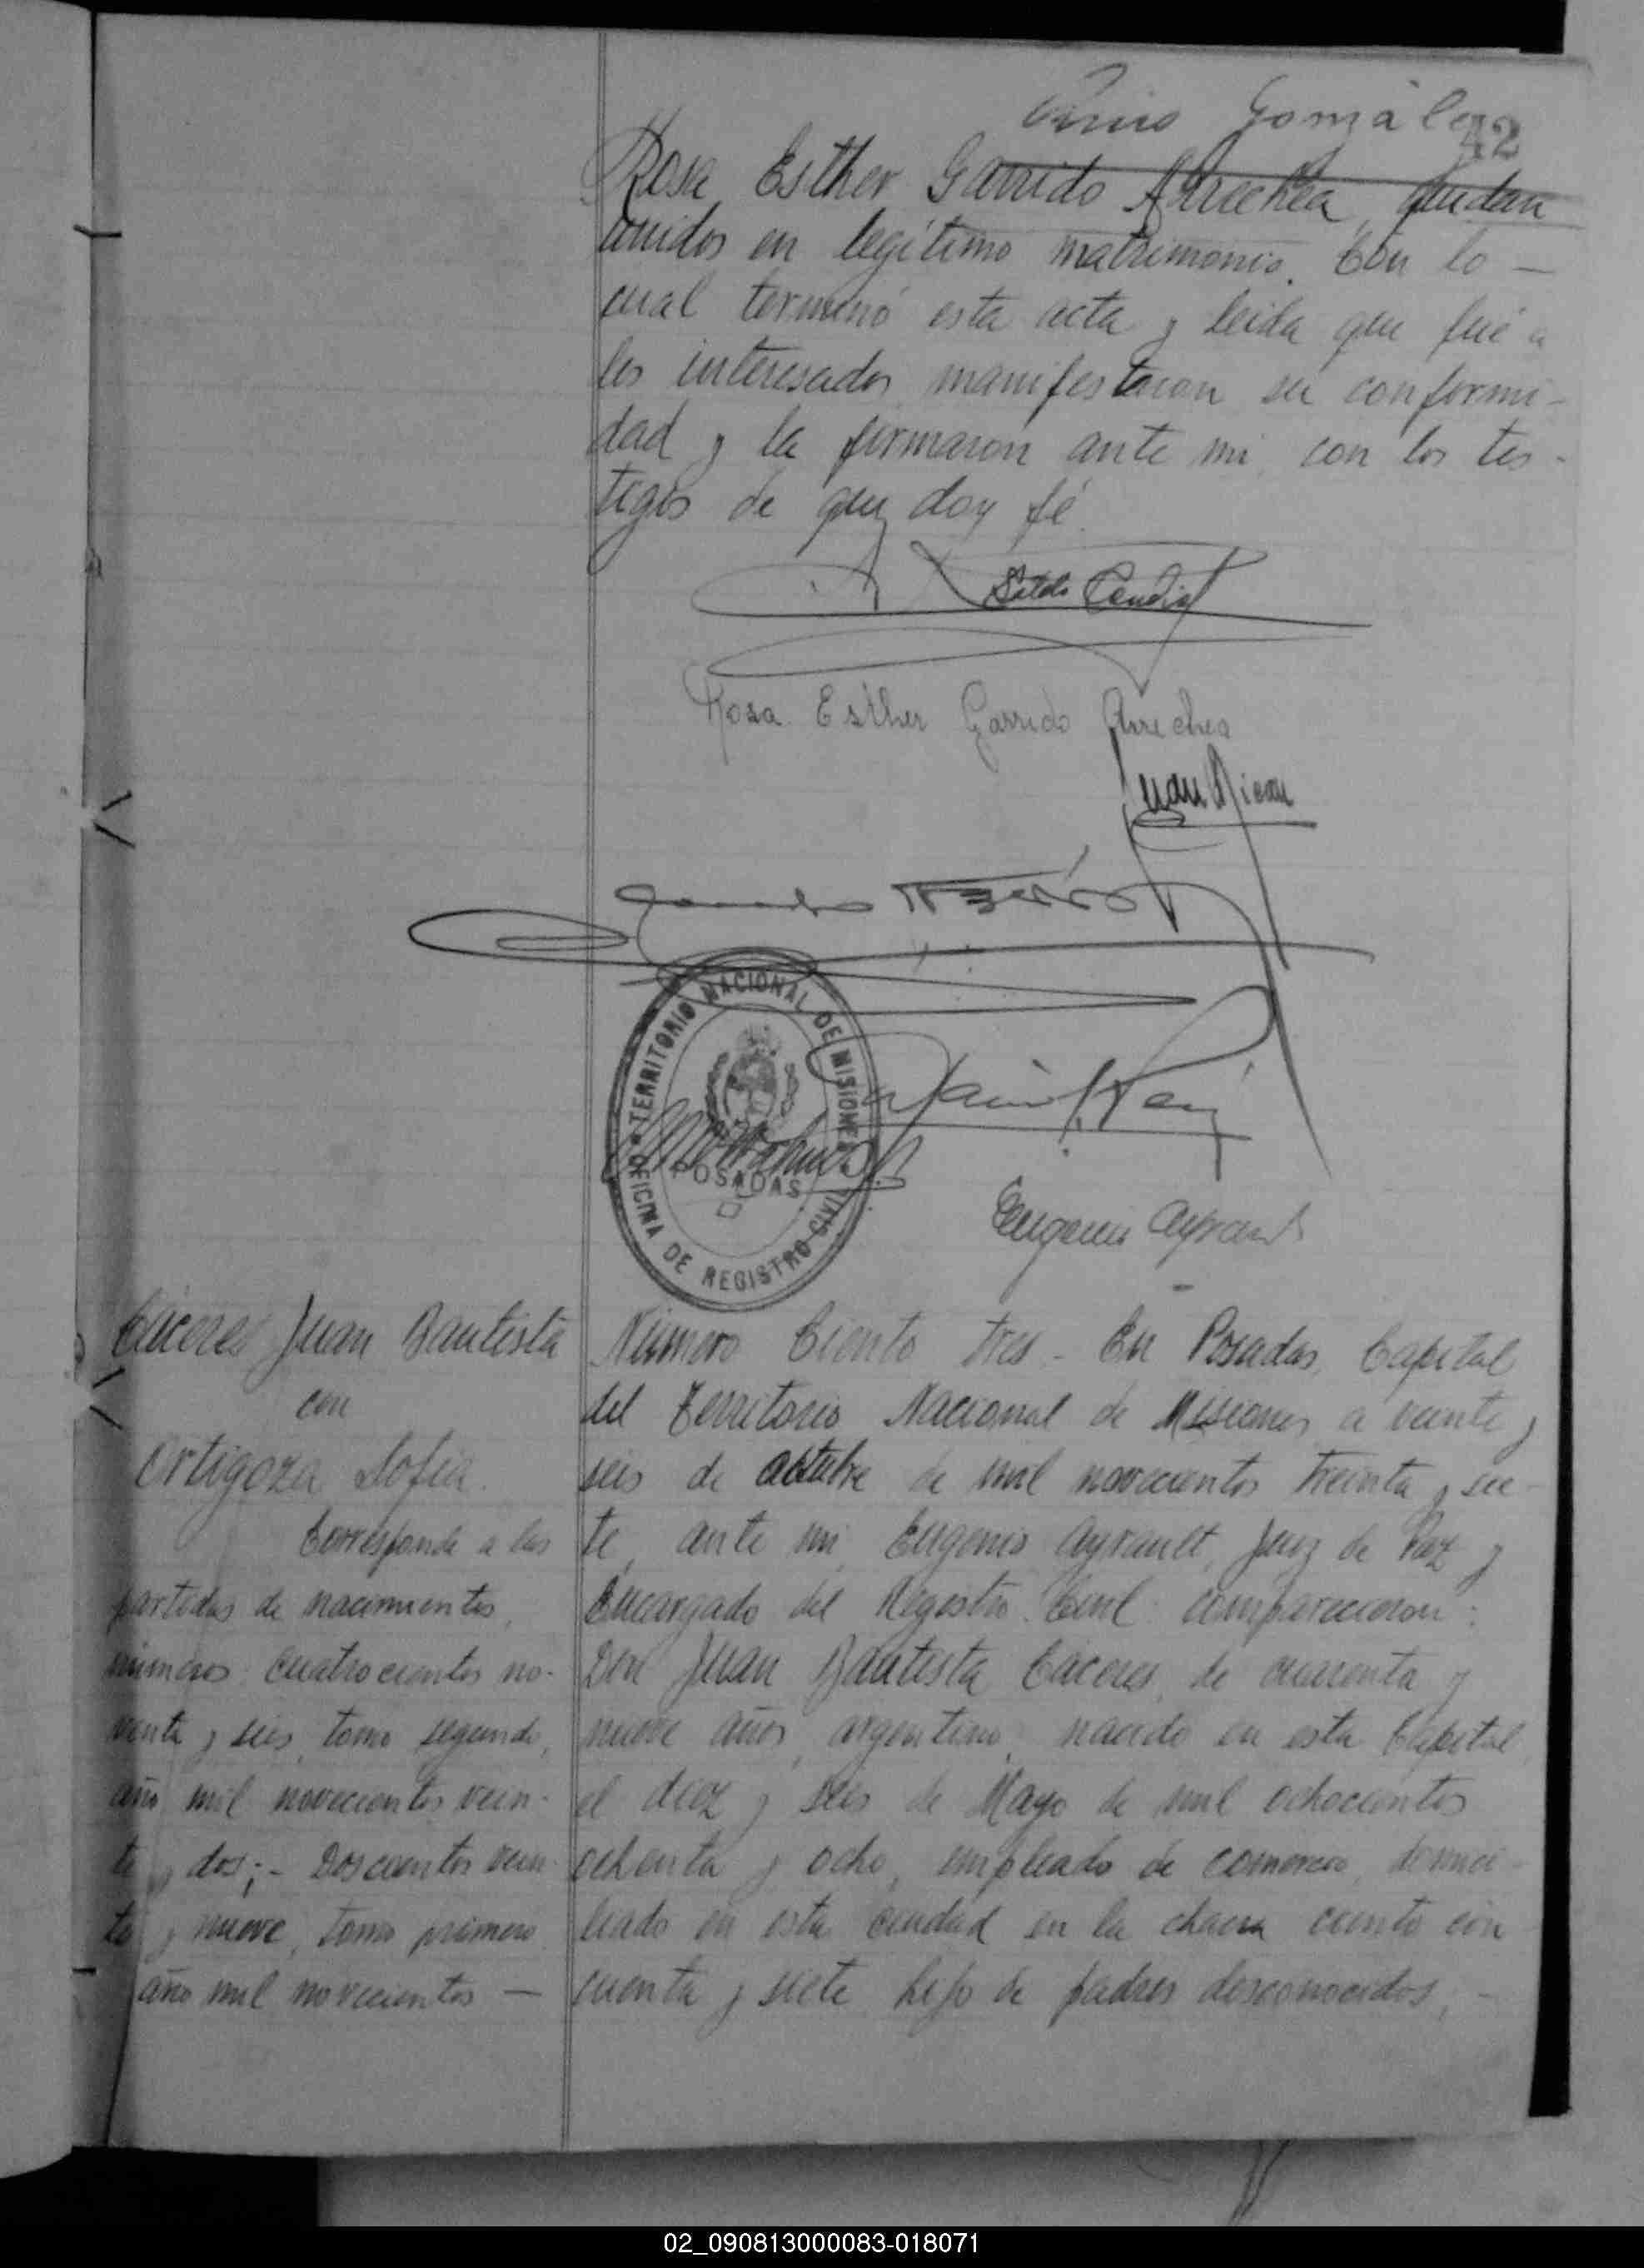 González
42
Rosa Esther Garrido Arrechea, quedan
unidos en legítimo matrimonio. Con lo —
cual terminó esta acta y leida que fué a
los interesados manifestaron su conformi-
dad y la firmaron ante mi con los tes-
tigos de que doy fé.
Rosa Esther Garrido Arrechea
Juan
TERRITORIO NACIONAL DE MISIONES
POSADAS
OFICINA DE REGISTRO CIVIL
Eugenio Ayrault
Cáceres Juan Bautista
con
Ortigoza Sofia.
Corresponde a las
partidas de nacimientos,
números cuatrocientos no-
venta y seis, tomo segundo,
año mil novecientos vein-
te y dos;- Doscientos vein-
te y nueve, tomo primero
año mil novecientos —
Número Ciento tres - En Posadas, Capital
del Territorio Nacional de Misiones a veinte y
seis de octubre de mil novecientos treinta y sie-
te, ante mi Eugenio Ayrault, Juez de Paz y
Encargado del Registro Civil comparecieron:
Don Juan Bautista Cáceres, de cuarenta y
nueve años, argentino, nacido en esta Capital,
el diez y seis de Mayo de mil ochocientos
ochenta y ocho, empleado de comercio, domici-
liado en esta ciudad en la chacra ciento cin
cuenta y siete hijo de padres desconocidos, -
02_090813000083-018071